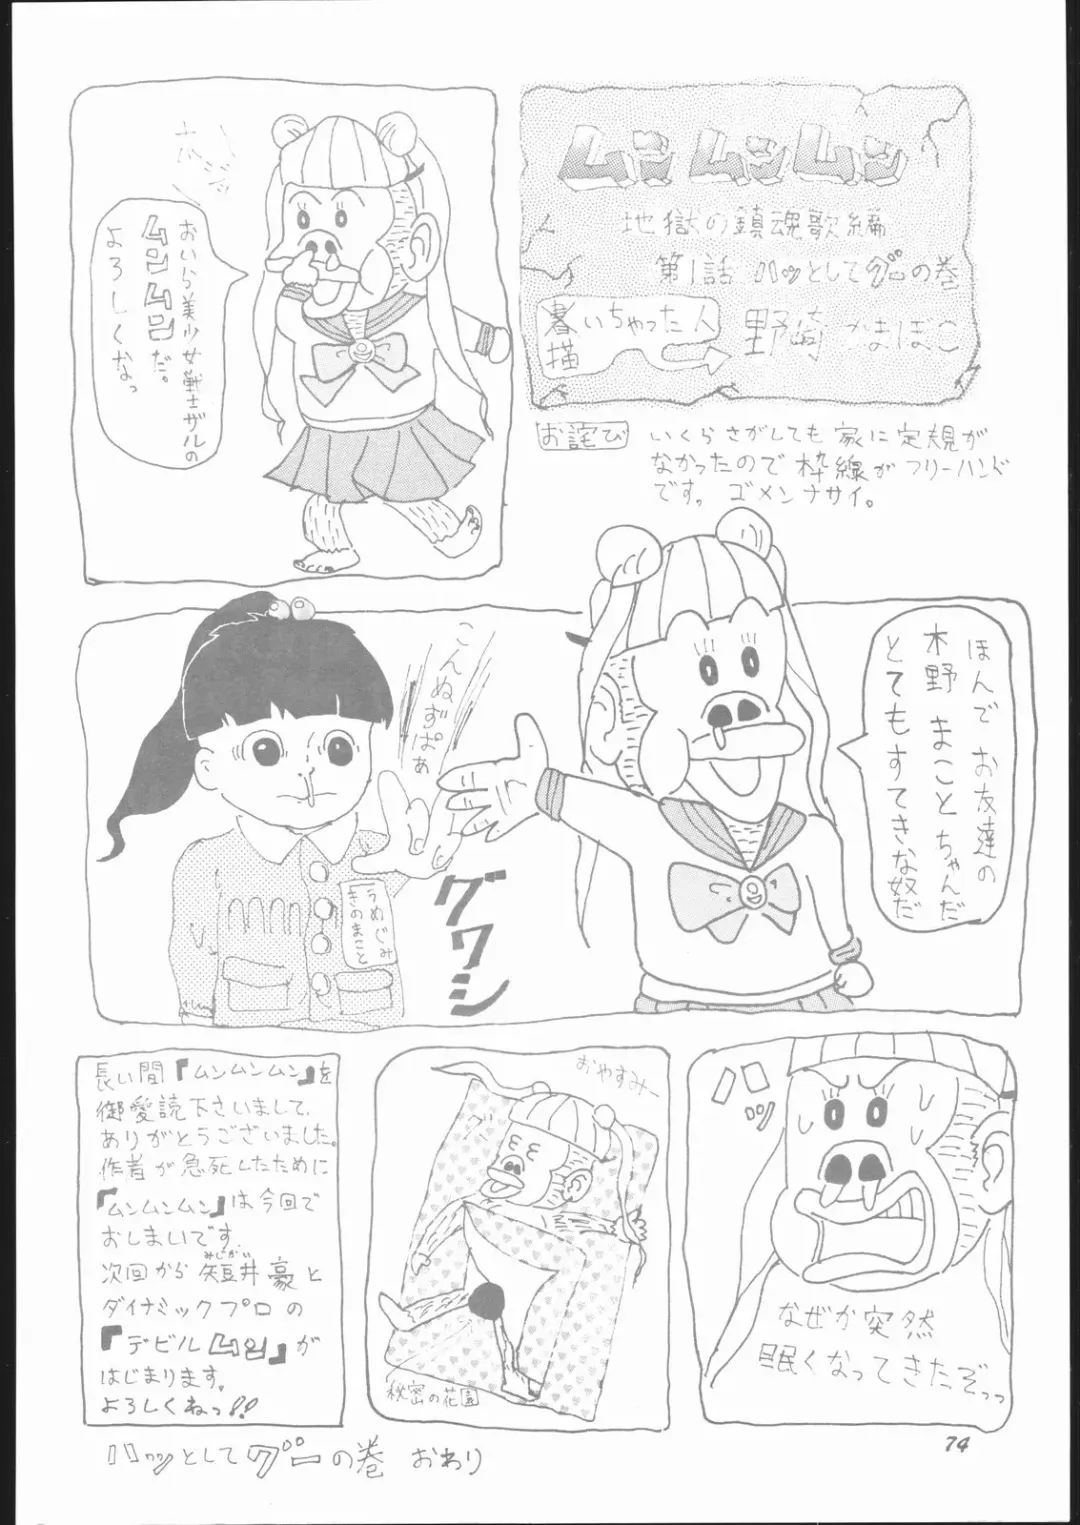 ムンムンムン
地獄の鎮魂歌編
第1話 ハッとしてグーの巻
書いちゃった人
描
野崎かまぼこ
お詫び
いくらさがしても家に定規が
なかったので枠線がフリーハンド
です。ゴメンナサイ。
おいら美少女戦士ザルの
ムンムンだ。
よろしくなっ
ほんでお友達の
木野まことちゃんだ
とてもすてきな奴だ
こんぬずぱぁ
グワシ
うめぐみ
きのまこと
ハッ
なぜか突然
眠くなってきたぞっっ
おやすみー
秘密の花園
長い間『ムンムンムン』を
御愛読下さいまして、
ありがとうございました。
作者が急死したために
『ムンムンムン』は今回で
おしまいです。
次回から短井豪と
みじかい
ダイナミックプロの
『デビルムン』が
はじまります。
よろしくねっ!!
ハッとしてグーの巻 おわり
74